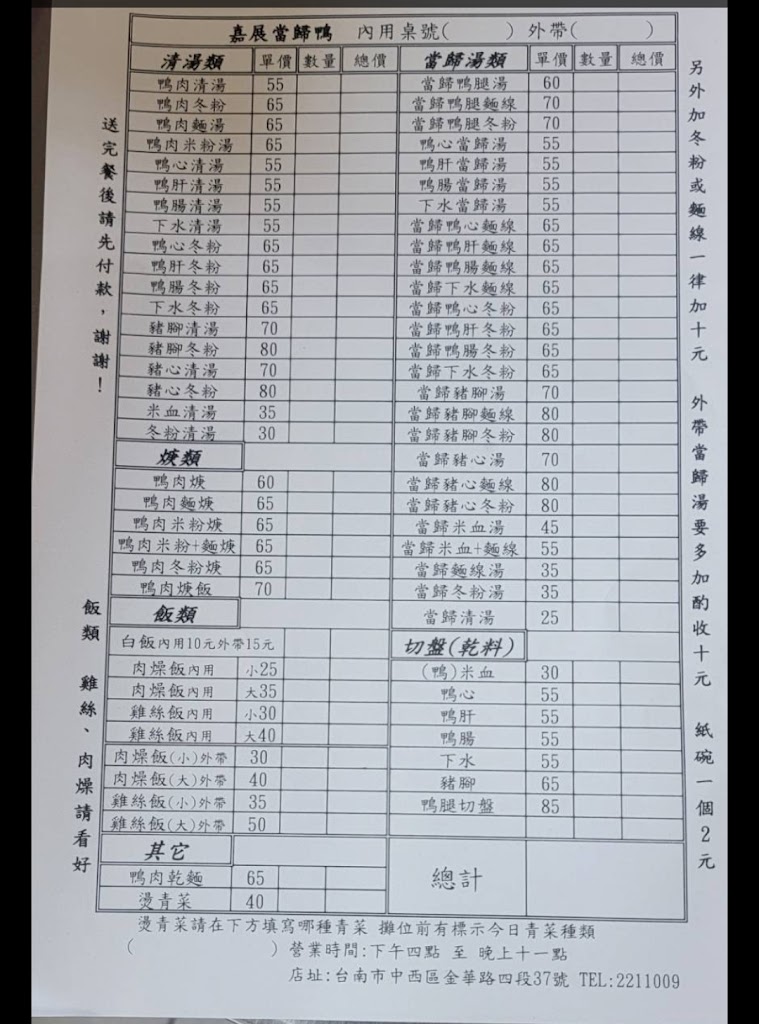 嘉展當歸鴨 內用桌號( ) 外帶( )
清湯類 單價 數量 總價
鴨肉清湯 55
鴨肉冬粉 65
鴨肉麵湯 65
鴨肉米粉湯 65
鴨心清湯 55
鴨肝清湯 55
鴨腸清湯 55
下水清湯 55
鴨心冬粉 65
鴨肝冬粉 65
鴨腸冬粉 65
下水冬粉 65
豬腳清湯 70
豬腳冬粉 80
豬心清湯 70
豬心冬粉 80
米血清湯 35
冬粉清湯 30
焿類
鴨肉焿 60
鴨肉麵焿 65
鴨肉米粉焿 65
鴨肉米粉+麵焿 65
鴨肉冬粉焿 65
鴨肉焿飯 70
飯類
白飯內用10元外帶15元
肉燥飯內用 小25
肉燥飯內用 大35
雞絲飯內用 小30
雞絲飯內用 大40
肉燥飯(小)外帶 30
肉燥飯(大)外帶 40
雞絲飯(小)外帶 35
雞絲飯(大)外帶 50
其它
鴨肉乾麵 65
燙青菜 40
當歸湯類 單價 數量 總價
當歸鴨腿湯 60
當歸鴨腿麵線 70
當歸鴨腿冬粉 70
鴨心當歸湯 55
鴨肝當歸湯 55
鴨腸當歸湯 55
下水當歸湯 55
當歸鴨心麵線 65
當歸鴨肝麵線 65
當歸鴨腸麵線 65
當歸下水麵線 65
當歸鴨心冬粉 65
當歸鴨肝冬粉 65
當歸鴨腸冬粉 65
當歸下水冬粉 65
當歸豬腳湯 70
當歸豬腳麵線 80
當歸豬腳冬粉 80
當歸豬心湯 70
當歸豬心麵線 80
當歸豬心冬粉 80
當歸米血湯 45
當歸米血+麵線 55
當歸麵線湯 35
當歸冬粉湯 35
當歸清湯 25
切盤(乾料)
(鴨)米血 30
鴨心 55
鴨肝 55
鴨腸 55
下水 55
豬腳 65
鴨腿切盤 85
總計
送完餐後請先付款，謝謝！
飯類 雞絲、肉燥請看好
另外加冬粉或麵線一律加十元 外帶當歸湯要多加酌收十元 紙碗一個2元
燙青菜請在下方填寫哪種青菜 攤位前有標示今日青菜種類
( ) 營業時間:下午四點 至 晚上十一點
店址:台南市中西區金華路四段37號 TEL:2211009